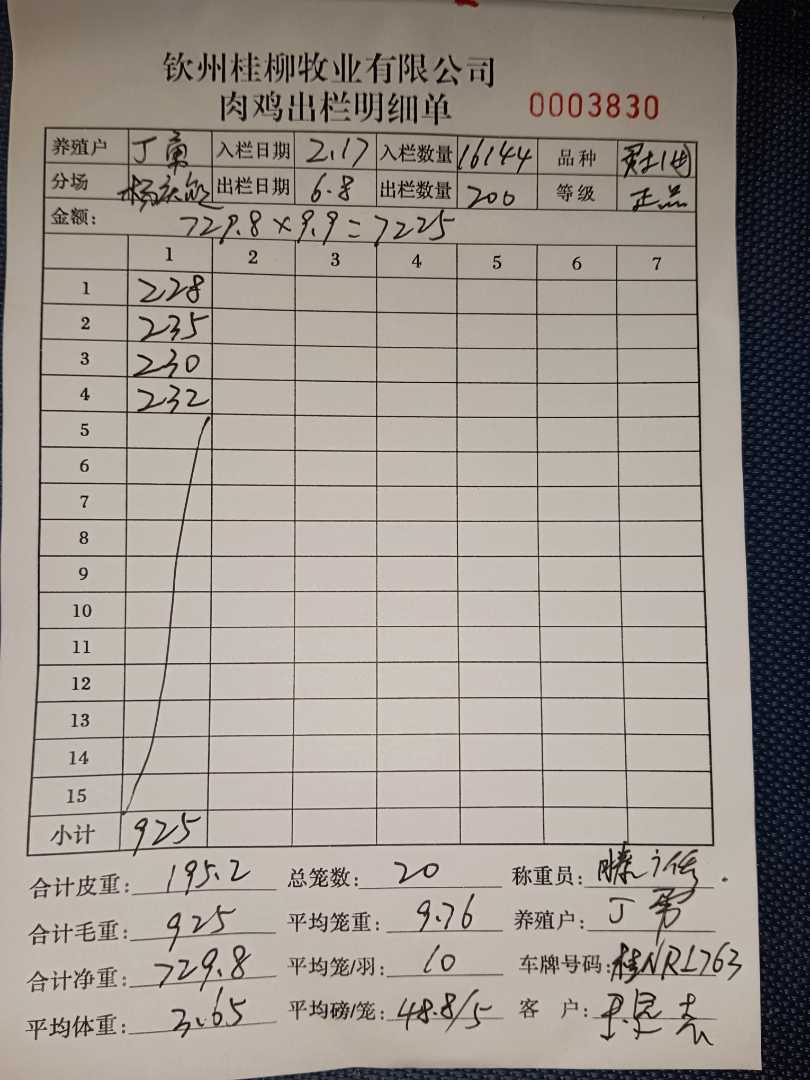 钦州桂柳牧业有限公司
肉鸡出栏明细单 0003830
养殖户 丁勇 入栏日期 2.17 入栏数量 16144 品种
分场 出栏日期 6.8 出栏数量 200 等级 正品
金额: 729.8×9.9=7225
1 2 3 4 5 6 7
1 228
2 235
3 230
4 232
5
6
7
8
9
10
11
12
13
14
15
小计 925
合计皮重: 195.2 总笼数: 20 称重员:
合计毛重: 925 平均笼重: 9.76 养殖户: 丁勇
合计净重: 729.8 平均笼/羽: 10 车牌号码: 桂NR1763
平均体重: 3.65 平均磅/笼: 48.8/5 客 户: